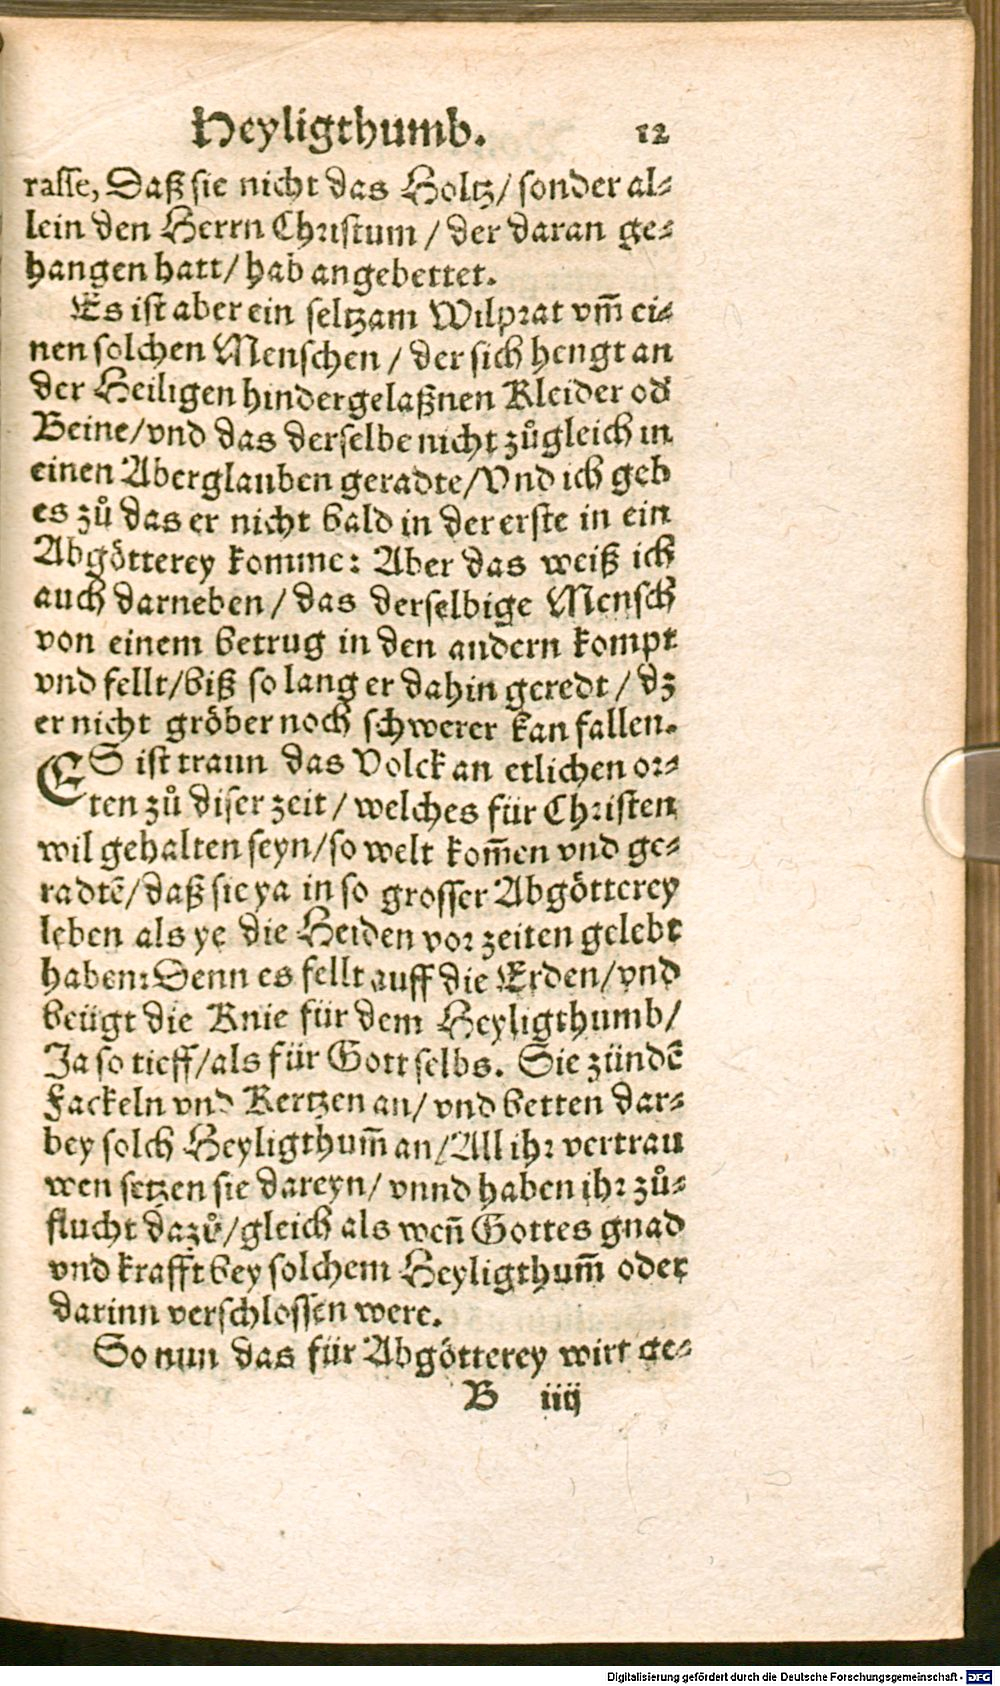 Heyligthumb. 12
rasse, Daß sie nicht das Holtz/ sonder al⸗
lein den Herrn Christum / der daran ge⸗
hangen hatt/ hab angebettet.
Es ist aber ein seltzam Wilprat vm̃ ei⸗
nen solchen Menschen / der sich hengt an
der Heiligen hindergelaßnen Kleider od̕
Beine/vnd das derselbe nicht zůgleich in
einen Aberglauben geradte/Vnd ich geb
es zů das er nicht bald in der erste in ein
Abgötterey komme: Aber das weiß ich
auch darneben / das derselbige Mensch
von einem betrug in den andern kompt
vnd fellt/biß so lang er dahin geredt / dz
er nicht gröber noch schwerer kan fallen.
ES ist traun das Volck an etlichen or⸗
ten zů diser zeit / welches für Christen
wil gehalten seyn/so welt kom̃en vnd ge⸗
radtē/daß sie ya in so grosser Abgötterey
leben als ye die Heiden vor zeiten gelebt
haben: Denn es fellt auff die Erden/vnd
beügt die Knie für dem Heyligthumb/
Ja so tieff/als für Gott selbs. Sie zündē
Fackeln vnd Kertzen an/ vnd betten dar⸗
bey solch Heyligthum̃ an/All ihr vertrau
wen setzen sie dareyn/ vnnd haben ihr zů⸗
flucht dazů/gleich als weñ Gottes gnad
vnd krafft bey solchem Heyligthum̃ oder
darinn verschlossen were.
So nun das für Abgötterey wirt ge⸗
B iiij
Digitalisierung gefördert durch die Deutsche Forschungsgemeinschaft - DFG